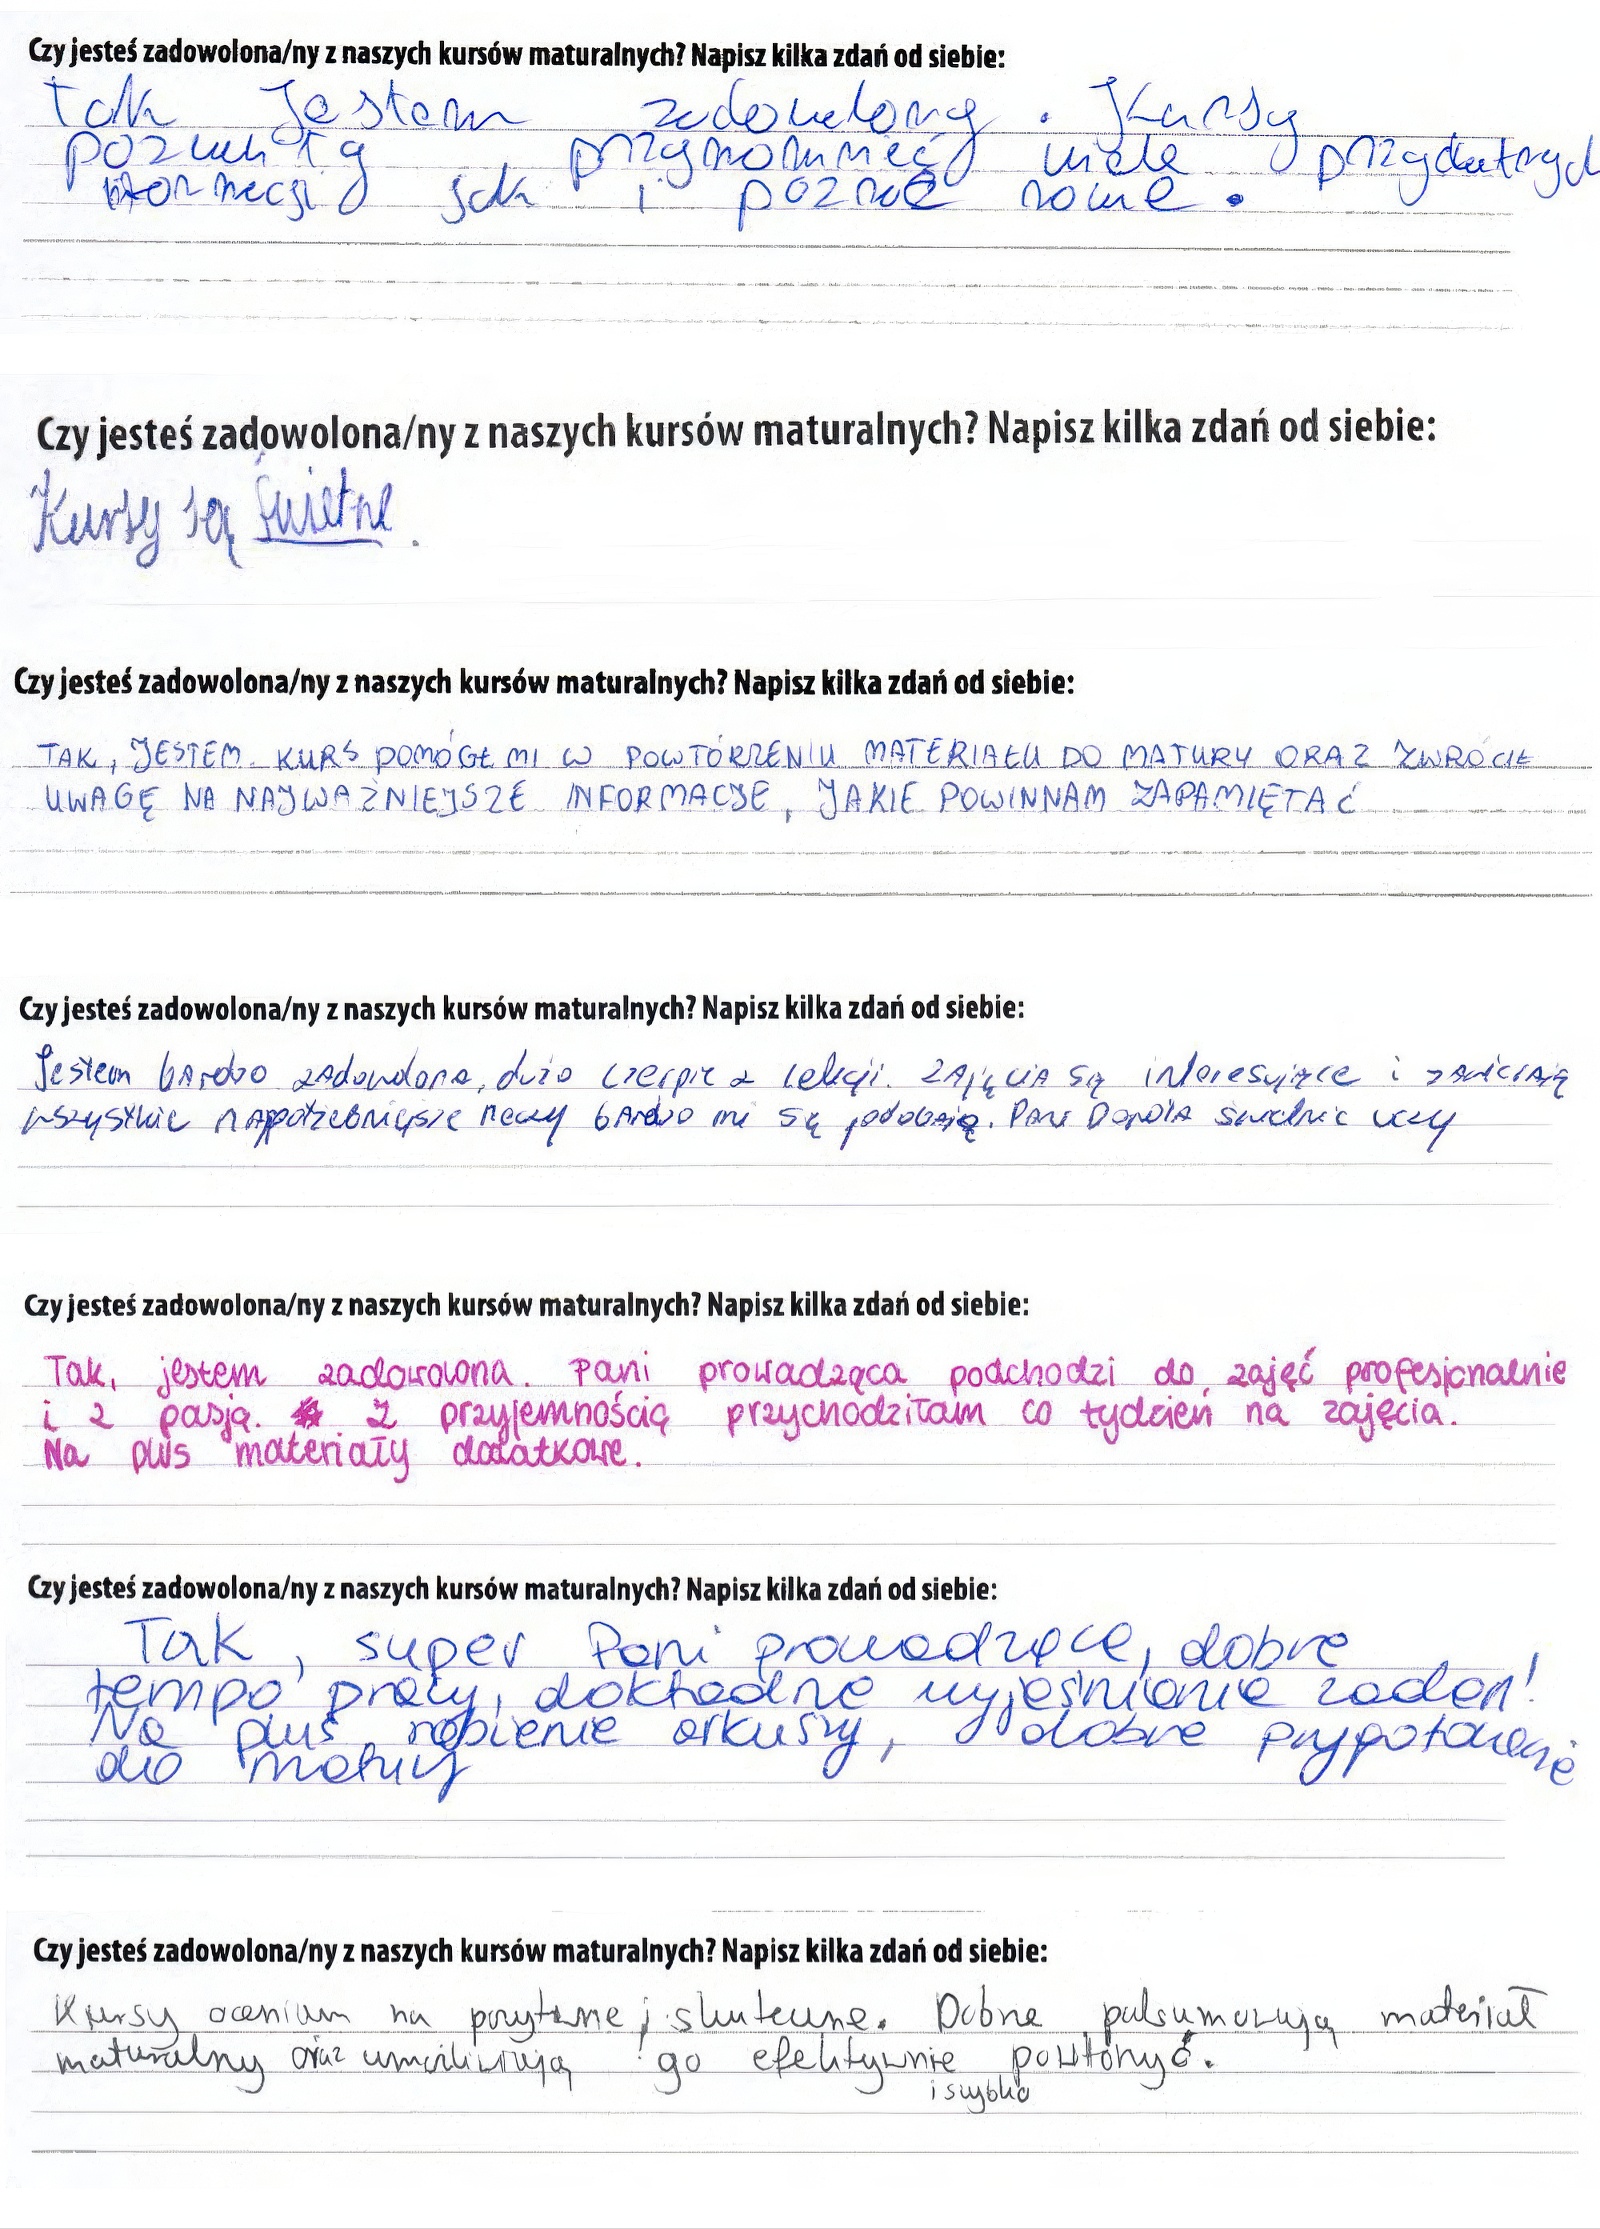 Czy jesteś zadowolona/ny z naszych kursów maturalnych? Napisz kilka zdań od siebie:
Tak jestem zadowolony. Kursy
pozwolą przypomnieć wiele przydatnych
informacji jak i poznać nowe.
Czy jesteś zadowolona/ny z naszych kursów maturalnych? Napisz kilka zdań od siebie:
Kursy są świetne.
Czy jesteś zadowolona/ny z naszych kursów maturalnych? Napisz kilka zdań od siebie:
TAK, JESTEM. KURS POMÓGŁ MI W POWTÓRZENIU MATERIAŁU DO MATURY ORAZ ZWRÓCIŁ
UWAGĘ NA NAJWAŻNIEJSZE INFORMACJE, JAKIE POWINNAM ZAPAMIĘTAĆ
Czy jesteś zadowolona/ny z naszych kursów maturalnych? Napisz kilka zdań od siebie:
Jestem bardzo zadowolona, dużo czerpię z lekcji. Zajęcia są interesujące i zawierają
wszystkie najpotrzebniejsze rzeczy bardzo mi się podobają. Pani Dorota świetnie uczy
Czy jesteś zadowolona/ny z naszych kursów maturalnych? Napisz kilka zdań od siebie:
Tak, jestem zadowolona. Pani prowadząca podchodzi do zajęć profesjonalnie
i z pasją. Z przyjemnością przychodziłam co tydzień na zajęcia.
Na plus materiały dodatkowe.
Czy jesteś zadowolona/ny z naszych kursów maturalnych? Napisz kilka zdań od siebie:
Tak, super Pani prowadząca, dobre
tempo pracy, dokładne wyjaśnienie zadań!
Na plus robienie arkuszy, dobre przygotowanie
do matury
Czy jesteś zadowolona/ny z naszych kursów maturalnych? Napisz kilka zdań od siebie:
Kursy oceniam na pozytywne i skuteczne. Dobrze podsumowują materiał
maturalny oraz umożliwiają go efektywnie powtórzyć.
i szybko